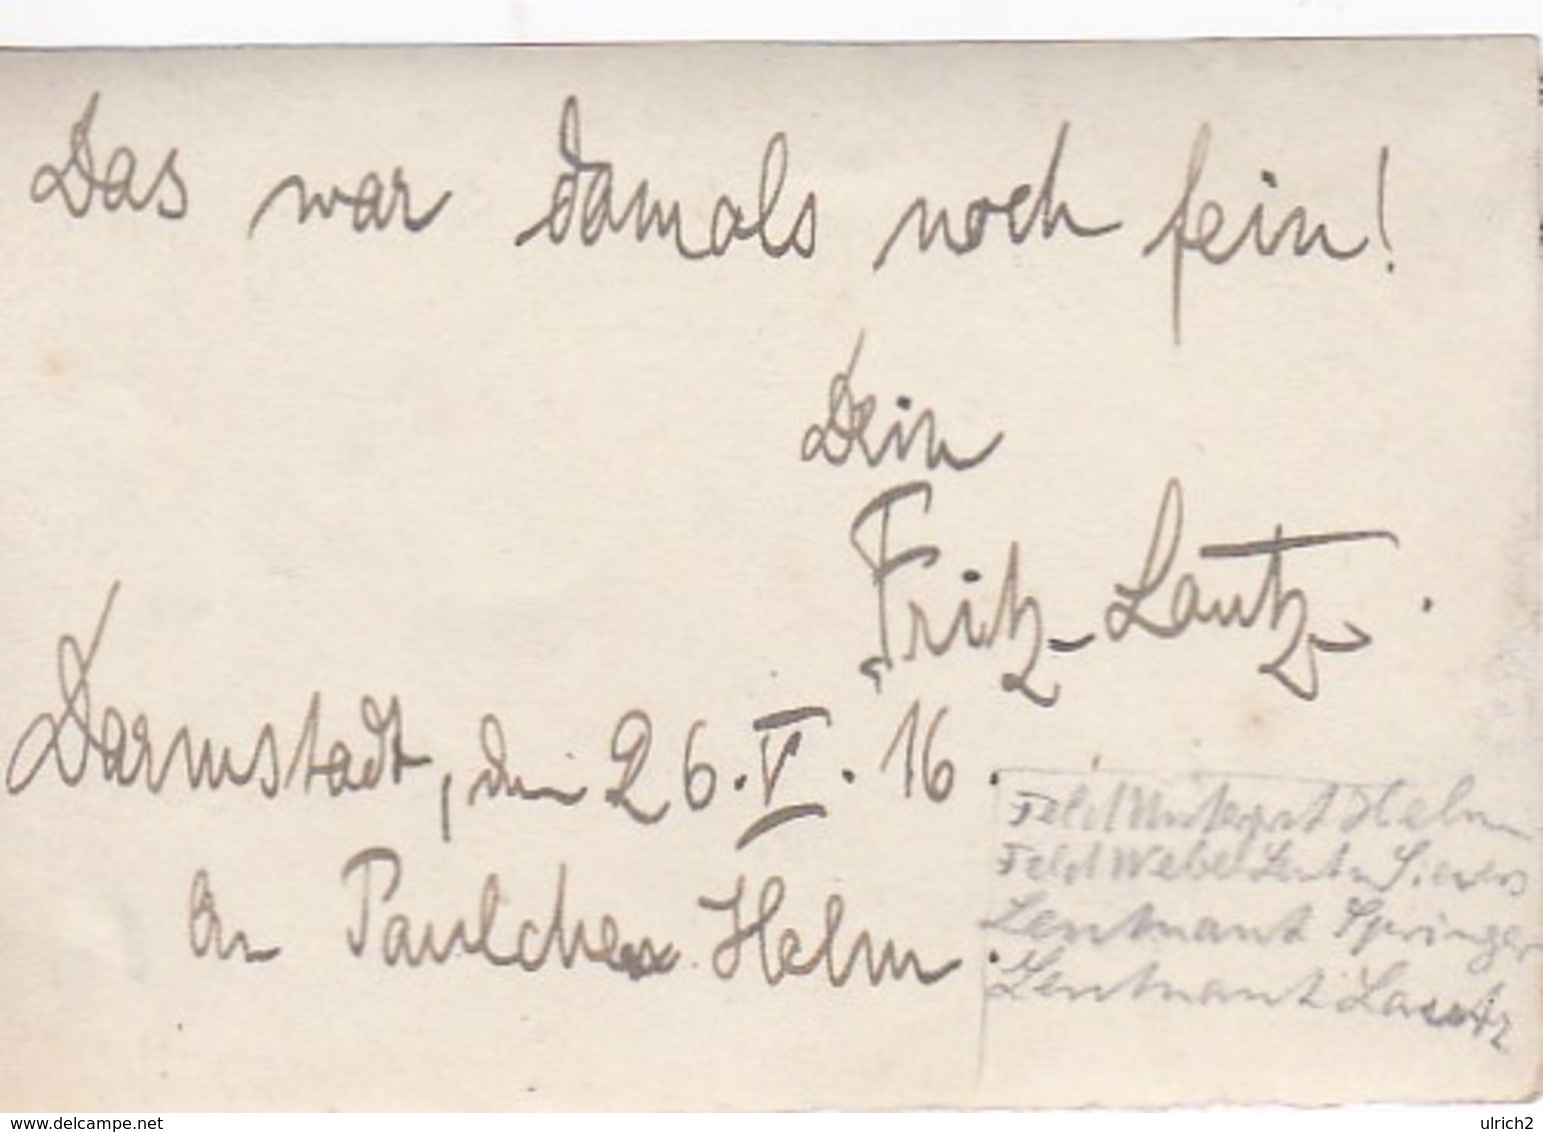 Das war damals noch fein!
Dein
Fritz Lautz.
Darmstadt, den 26.V.16.
An Paulchen Helm.
Feld Helm
Feld Webel Leutn Sievers
Leutnant Springer
Leutnant Lautz
www.delcampe.net
ulrich2